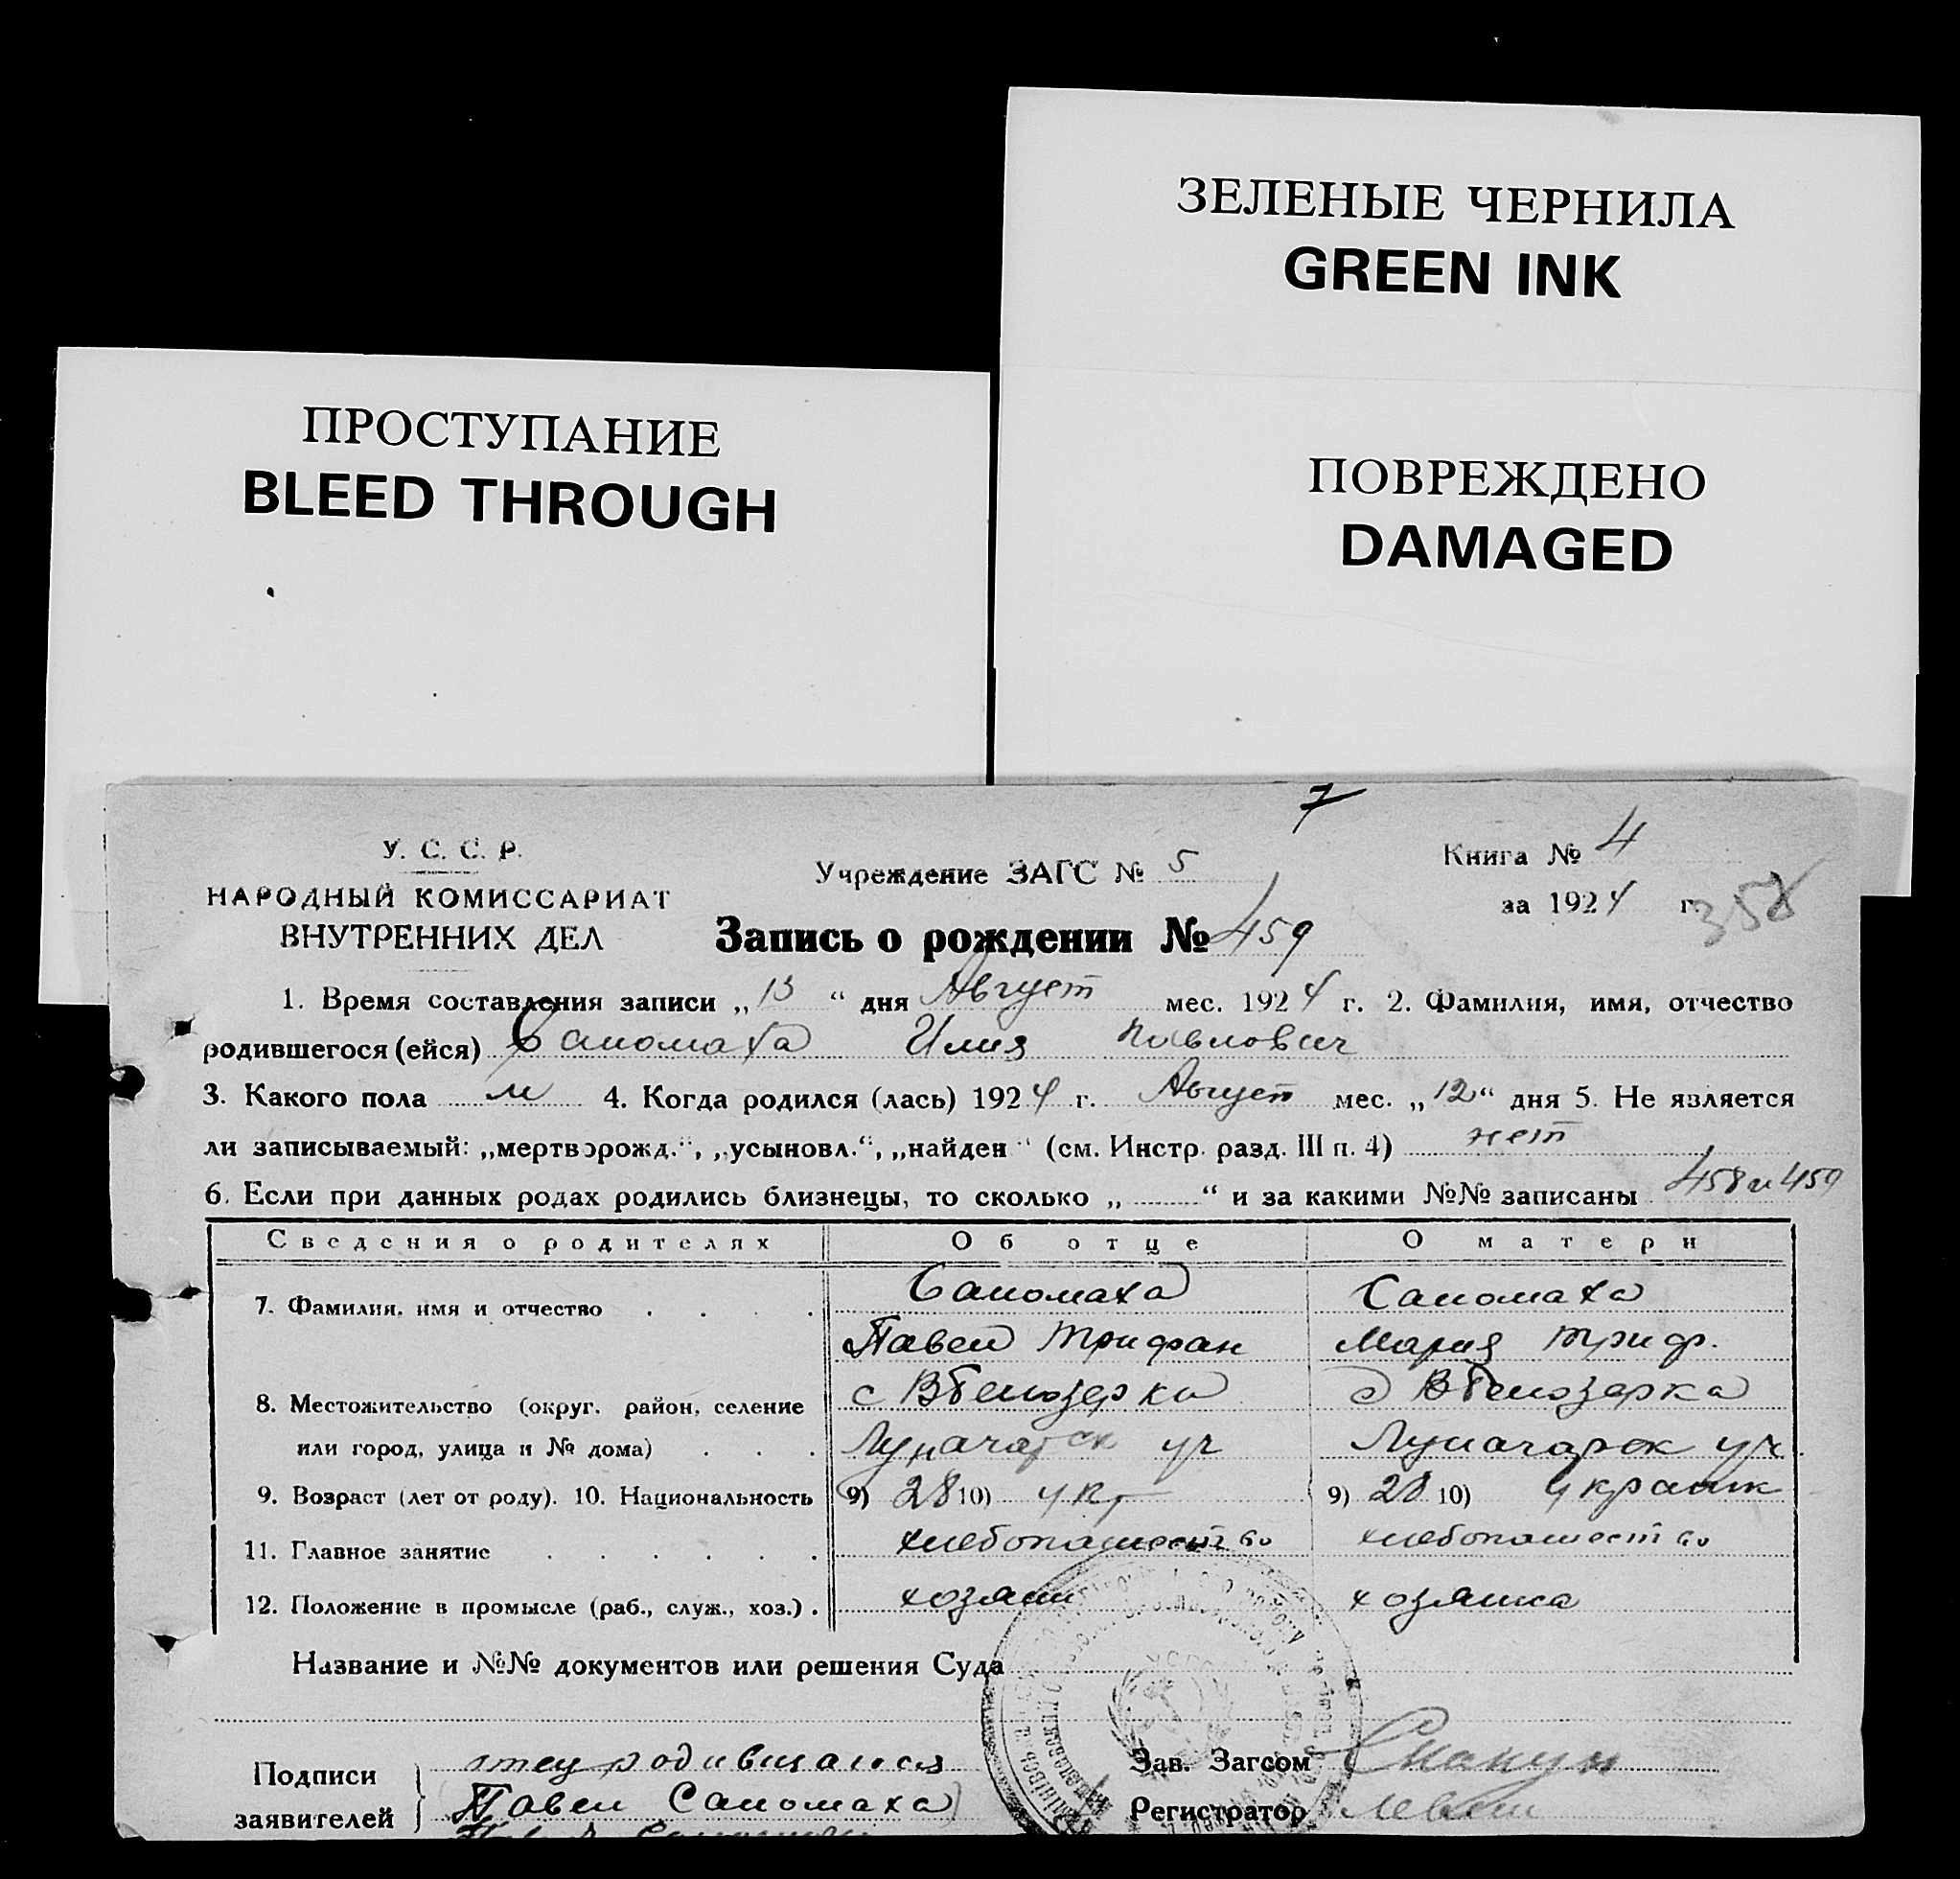 ЗЕЛЕНЫЕ ЧЕРНИЛА
GREEN INK
ПРОСТУПАНИЕ
BLEED THROUGH
ПОВРЕЖДЕНО
DAMAGED
7
У. С. С. Р.
НАРОДНЫЙ КОМИССАРИАТ
ВНУТРЕННИХ ДЕЛ
Учреждение ЗАГС № 5
Книга № 4
за 1924 г.
358
Запись о рождении № 459
1. Время составления записи „13“ дня Август мес. 1924 г. 2. Фамилия, имя, отчество
родившегося (ейся) Саломаха Илия Павлович
3. Какого пола м 4. Когда родился (лась) 1924 г. Август мес. „12“ дня 5. Не является
ли записываемый: „мертворожд.“, „усыновл.“, „найден“ (см. Инстр. разд. III п. 4) нет
6. Если при данных родах родились близнецы, то сколько „ “ и за какими №№ записаны 458 и 459
Сведения о родителях Об отце О матери
7. Фамилия, имя и отчество Саломаха Саломаха
Павел Трифан Мария Триф.
8. Местожительство (округ, район, селение с В Белозерка с В Белозерка
или город, улица и № дома) Луначарск уч Луначарск уч.
9. Возраст (лет от роду). 10. Национальность 9) 28 10) укр 9) 28 10) украинк
11. Главное занятие хлебопашество хлебопашество
12. Положение в промысле (раб., служ., хоз.) хозяин хозяйка
Название и №№ документов или решения Суда
Подписи заявителей отец родившагося
Павел Саломаха
Зав. Загсом
Регистратор